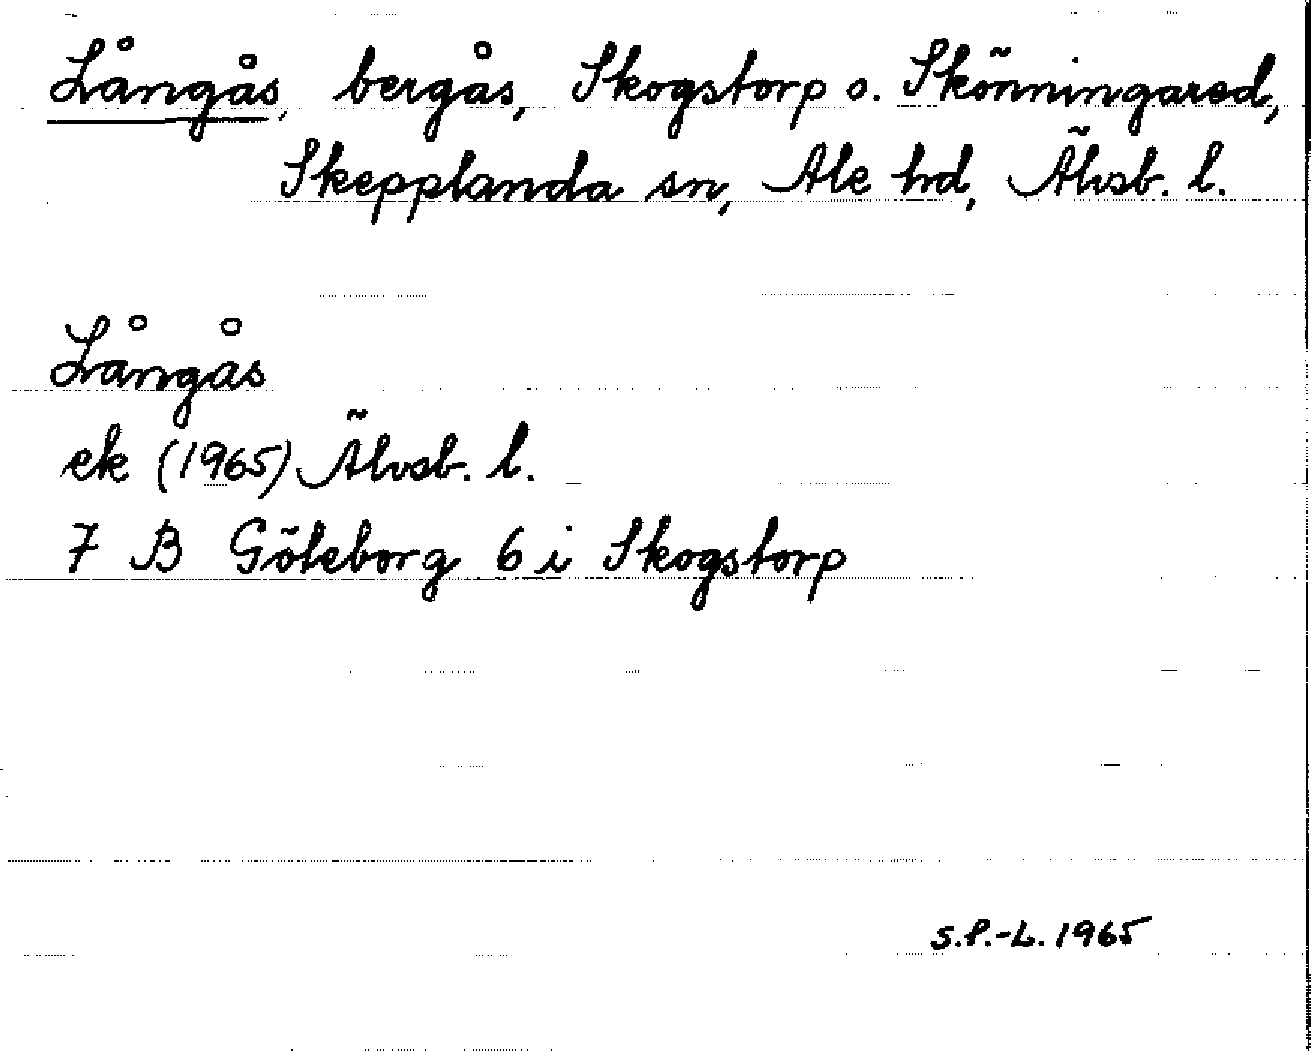 Långås, bergås, Skogstorp o. Skönningared,
Skepplanda sn, Ale hd, Älvsb. l.
Långås
ek (1965) Älvsb. l.
7 B Göteborg 6 i Skogstorp
S.P.-L. 1965